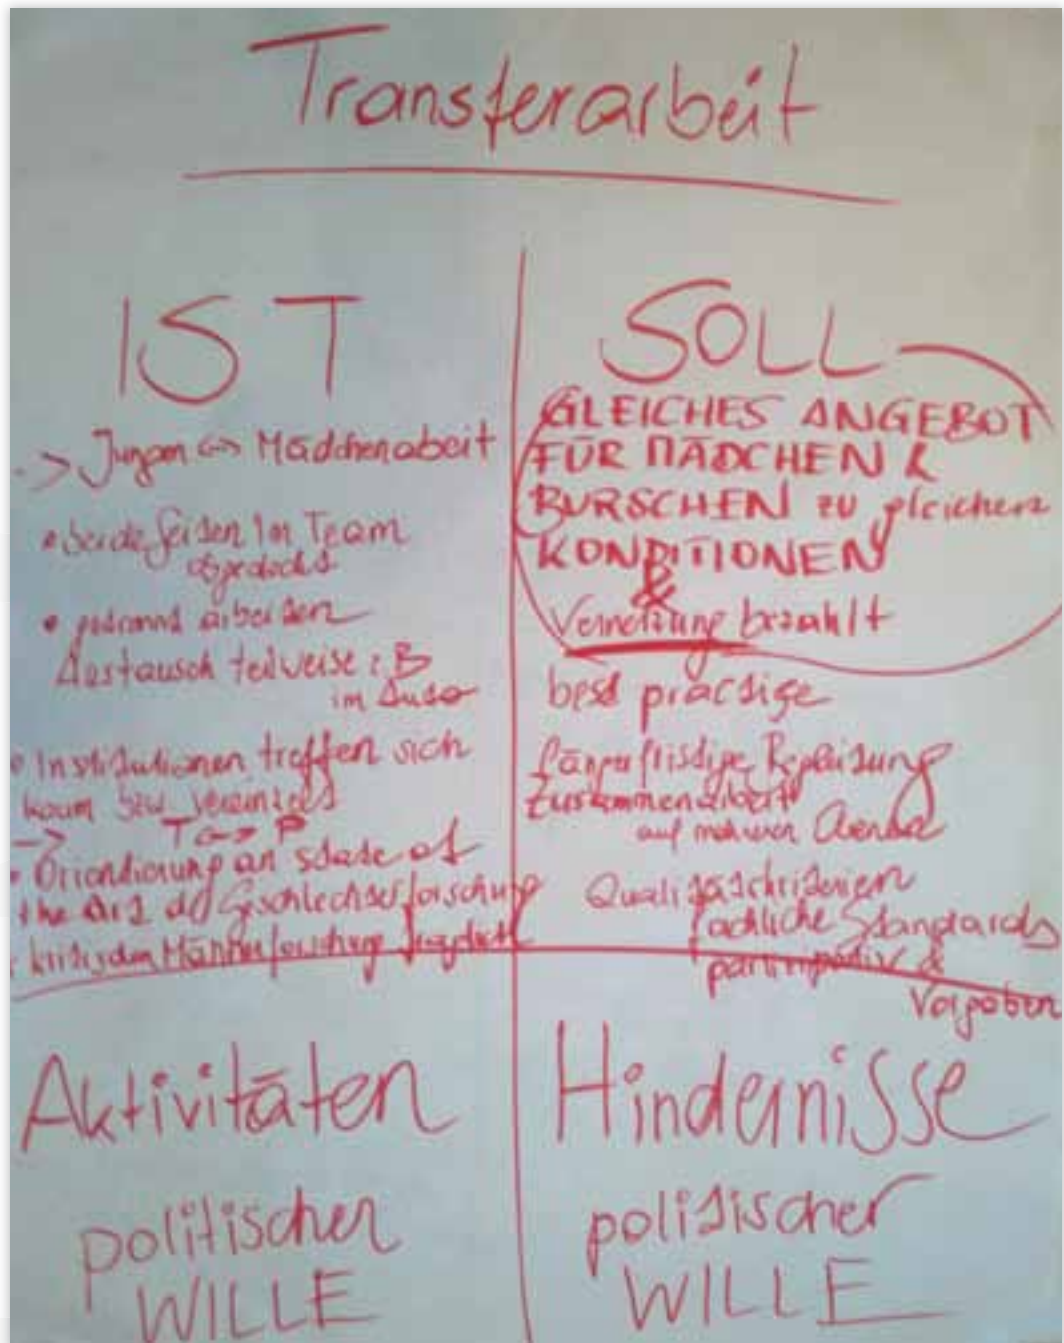 Transferarbeit
IST
-> Jungen <-> Mädchenarbeit
• beide Seiten im Team
abgedeckt
• getrennt arbeiten
Austausch teilweise z.B
im Auto
• Institutionen treffen sich
kaum bzw. vereinzelt
-> T <-> P
• Orientierung an state of
the art der Geschlechterforschung
kritischen Männerforschung fraglich
SOLL
GLEICHES ANGEBOT
FÜR MÄDCHEN &
BURSCHEN zu gleichen
KONDITIONEN
&
Vernetzung bezahlt
best practige
längerfristige Begleitung
Zusammenarbeit
auf mehreren Ebenen
Qualitätskriterien
fachliche Standards
partizipativ &
Vorgaben
Aktivitäten
politischer
WILLE
Hindernisse
politischer
WILLE